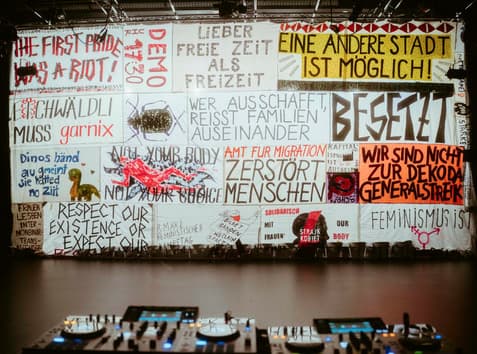 THE FIRST PRIDE
WAS A RIOT!
DEMO
1730
LIEBER
FREIE ZEIT
ALS
FREIZEIT
EINE ANDERE STADT
IST MÖGLICH!
SCHWÄLDLI
MUSS garnix
WER AUSSCHAFFT,
REISST FAMILIEN
AUSEINANDER
BESETZT
Dinos händ
au gmeint
sie hätted
no ziit
NOT YOUR BODY
NOT YOUR CHOICE
AMT FÜR MIGRATION
ZERSTÖRT
MENSCHEN
WIR SIND NICHT
ZUR DEKO DA
GENERALSTREIK
FRAUEN
LESBEN
INTER-
NONBINÄR
TRANS-
RESPECT OUR
EXISTENCE OR
EXPECT OUR
SOLIDARISCH
MIT
FRAUEN
STRAJK
KOBIET
OUR
BODY
FEMINISMUS IS